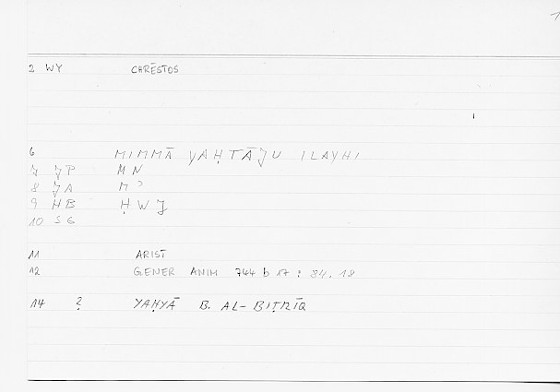 2 WY CHRĒSTOS
6 MIMMĀ YAḤTĀJU ILAYHI
7 JP MN
8 JA Mʾ
9 HB ḤWJ
10 SG
11 ARIST
12 GENER ANIM 744 b 17 : 84.18
14 ? YAḤYĀ B. AL-BIṬRĪQ